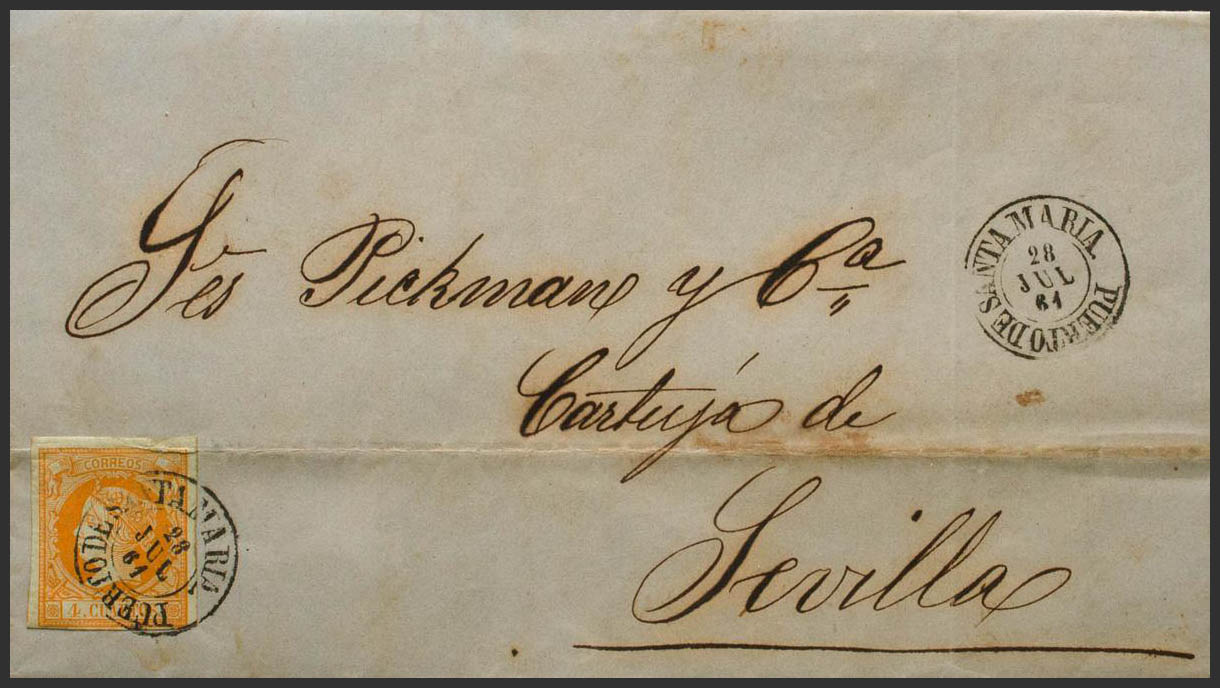 Sres Pickman y Cª
Cartuja de
Sevilla
PUERTO DE SANTA MARIA.
28
JUL
61
CORREOS
4. CUARTOS
PUERTO DE SANTA MARIA
28
JUL
61